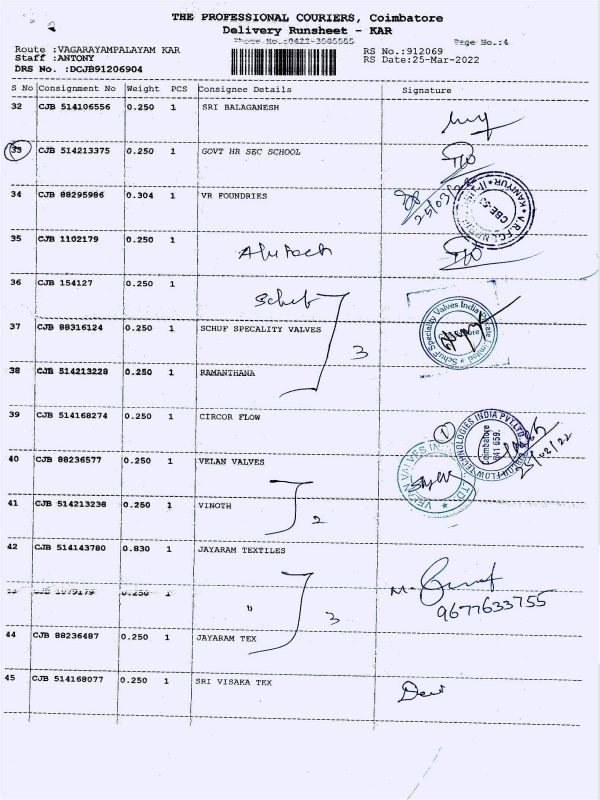 THE PROFESSIONAL COURIERS, Coimbatore
Delivery Runsheet - KAR
Phone No.:0422-3505555
Page No.:4
Route :VAGARAYAMPALAYAM KAR
RS No.:912069
Staff :ANTONY
RS Date:25-Mar-2022
DRS No. :DCJB91206904
S No Consignment No Weight PCS Consignee Details Signature
32 CJB 514106556 0.250 1 SRI BALAGANESH
33 CJB 514213375 0.250 1 GOVT HR SEC SCHOOL
34 CJB 88295986 0.304 1 VR FOUNDRIES
25/03/22
35 CJB 1102179 0.250 1
36 CJB 154127 0.250 1
Schuf
37 CJB 88316124 0.250 1 SCHUF SPECALITY VALVES
3
Schuf Speciality Valves India Private Limited
38 CJB 514213228 0.250 1 RAMANTHANA
39 CJB 514168274 0.250 1 CIRCOR FLOW
1
CIRCOR FLOW TECHNOLOGIES INDIA PVT.LTD.
Coimbatore
641 659.
40 CJB 88236577 0.250 1 VELAN VALVES
VELAN VALVES INDIA LTD
41 CJB 514213238 0.250 1 VINOTH
2
42 CJB 514143780 0.830 1 JAYARAM TEXTILES
9677633755
43 CJB 1079179 0.250 1 "
3
44 CJB 88236487 0.250 1 JAYARAM TEX
45 CJB 514168077 0.250 1 SRI VISAKA TEX
Devi